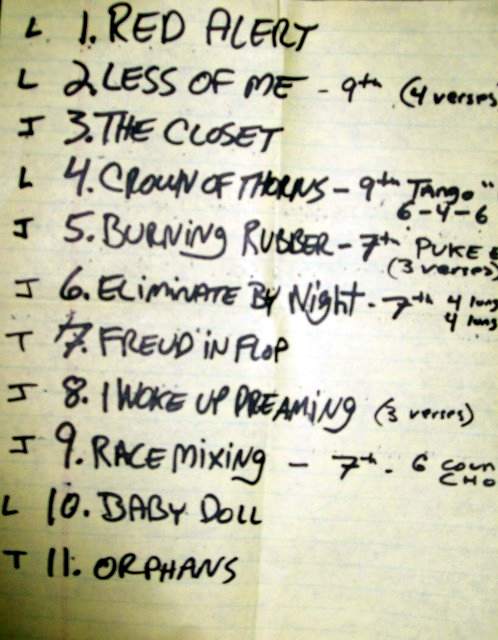 L 1. RED ALERT
L 2. LESS OF ME - 9th (4 verses
J 3. THE CLOSET
L 4. CROWN OF THORNS - 9th Tango"
6-4-6
J 5. BURNING RUBBER - 7th PUKE
(3 verses)
J 6. ELIMINATE BY Night - 7th 4 long
4 long
T 7. FREUD IN FLOP
J 8. I WOKE UP DREAMING (3 verses)
J 9. RACE MIXING - 7th - 6 COUN
CHO
L 10. BABY DOLL
T 11. ORPHANS